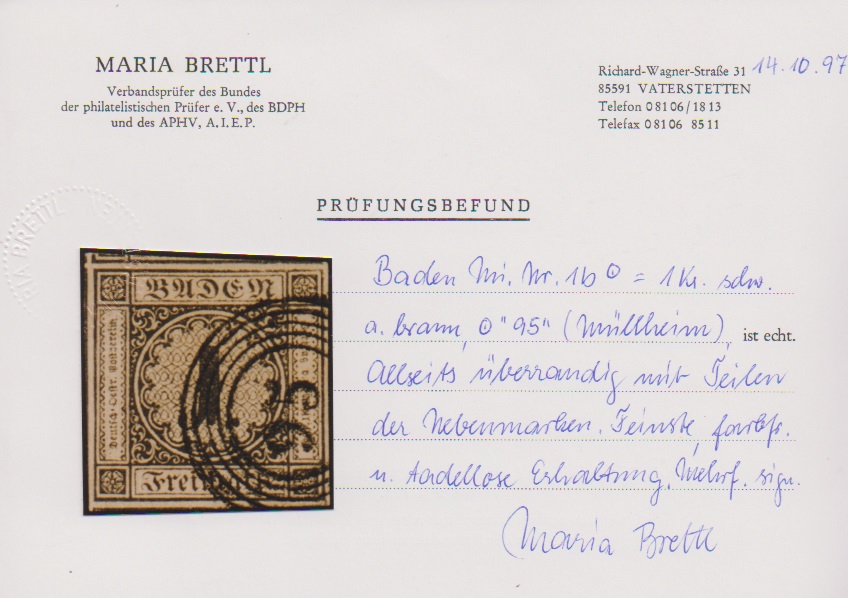 MARIA BRETTL
Verbandsprüfer des Bundes
der philatelistischen Prüfer e. V., des BDPH
und des APHV, A.I.E.P.
Richard-Wagner-Straße 31 14.10.97
85591 VATERSTETTEN
Telefon 08106/1813
Telefax 08106 8511
PRÜFUNGSBEFUND
MARIA BRETTL
BADEN
Deutsch-Oestr. Postverein
1
95
Freimarke
Baden Mi. Nr. 1b ⊙ = 1 Kr. schw.
a. braun, ⊙ "95" (Müllheim), ist echt.
Allseits überrandig mit Teilen
der Nebenmarken. Feinste, farbfr.
u. tadellose Erhaltung, Mehrf. sign.
Maria Brettl